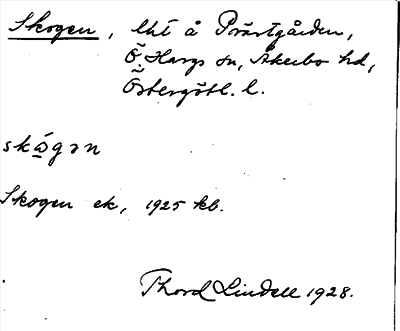 Skogen, lht å Prästgården,
Ö. Hargs sn, Åkerbo hd,
Östergötl. l.
skógən
Skogen ek, 1925 kb.
Thord Lindell 1928.